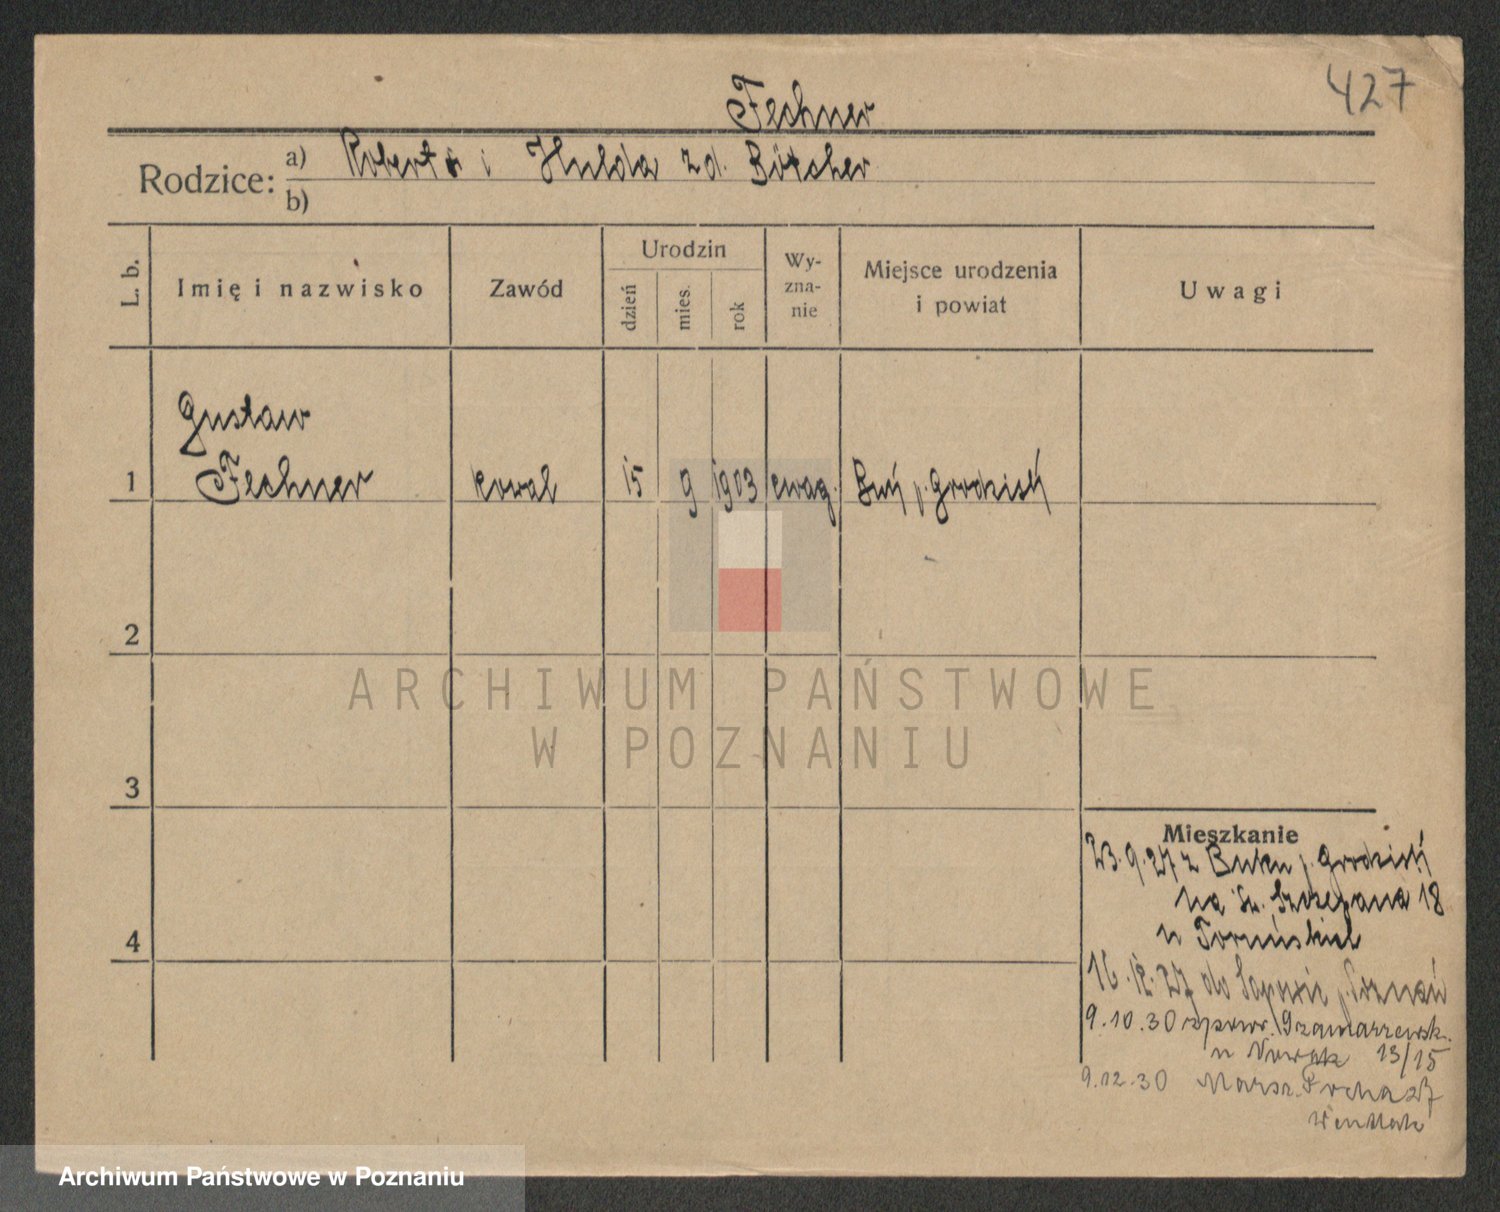 427
Fechner
Rodzice: a) Robert i Hulda zd. Bötcher
b)
L. b.
Imię i nazwisko
Zawód
Urodzin
dzień
mies.
rok
Wy-
zna-
nie
Miejsce urodzenia
i powiat
Uwagi
Gustaw
1 Fechner kowal 15 9 1903 ewag. Buk p. Grodzisk
2
ARCHIWUM PAŃSTWOWE
W POZNANIU
3
Mieszkanie
23.9.27 z Buku p. Grodzisk
na Św. Szczepana 18
4
u
16.12.27 do p. Poznań
9.10.30
u Nowak 13/15
9.12.30 Marsz. Focha
Archiwum Państwowe w Poznaniu